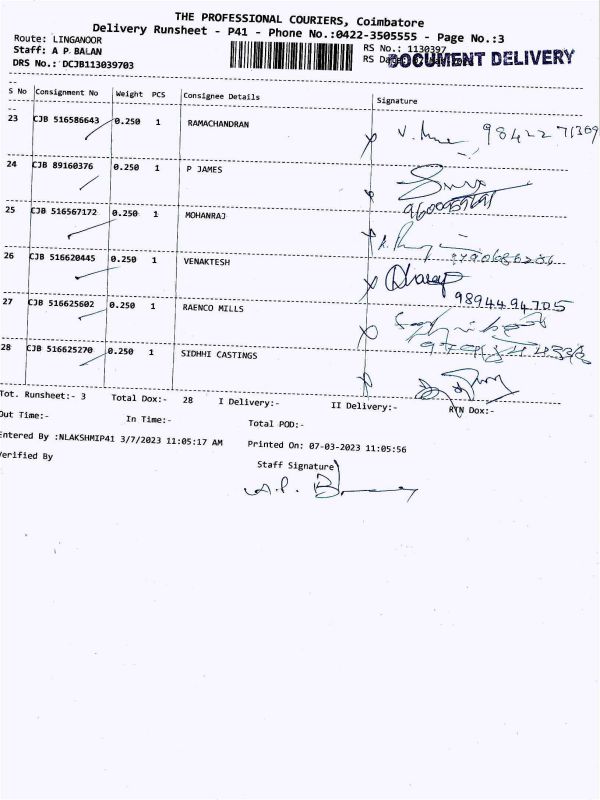 THE PROFESSIONAL COURIERS, Coimbatore
Delivery Runsheet - P41 - Phone No.:0422-3505555 - Page No.:3
Route: LINGANOOR
RS No.: 1130397
Staff: A P BALAN
RS
DOCUMENT DELIVERY
DRS No.: DCJB113039703
S No Consignment No Weight PCS Consignee Details Signature
23 CJB 516586643 0.250 1 RAMACHANDRAN
24 CJB 89160376 0.250 1 P JAMES
25 CJB 516567172 0.250 1 MOHANRAJ
26 CJB 516620445 0.250 1 VENAKTESH
9894494705
27 CJB 516625602 0.250 1 RAENCO MILLS
28 CJB 516625270 0.250 1 SIDHHI CASTINGS
Tot. Runsheet:- 3 Total Dox:- 28 I Delivery:- II Delivery:- RTN Dox:-
Out Time:- In Time:- Total POD:-
Entered By :NLAKSHMIP41 3/7/2023 11:05:17 AM Printed On: 07-03-2023 11:05:56
Verified By
Staff Signature